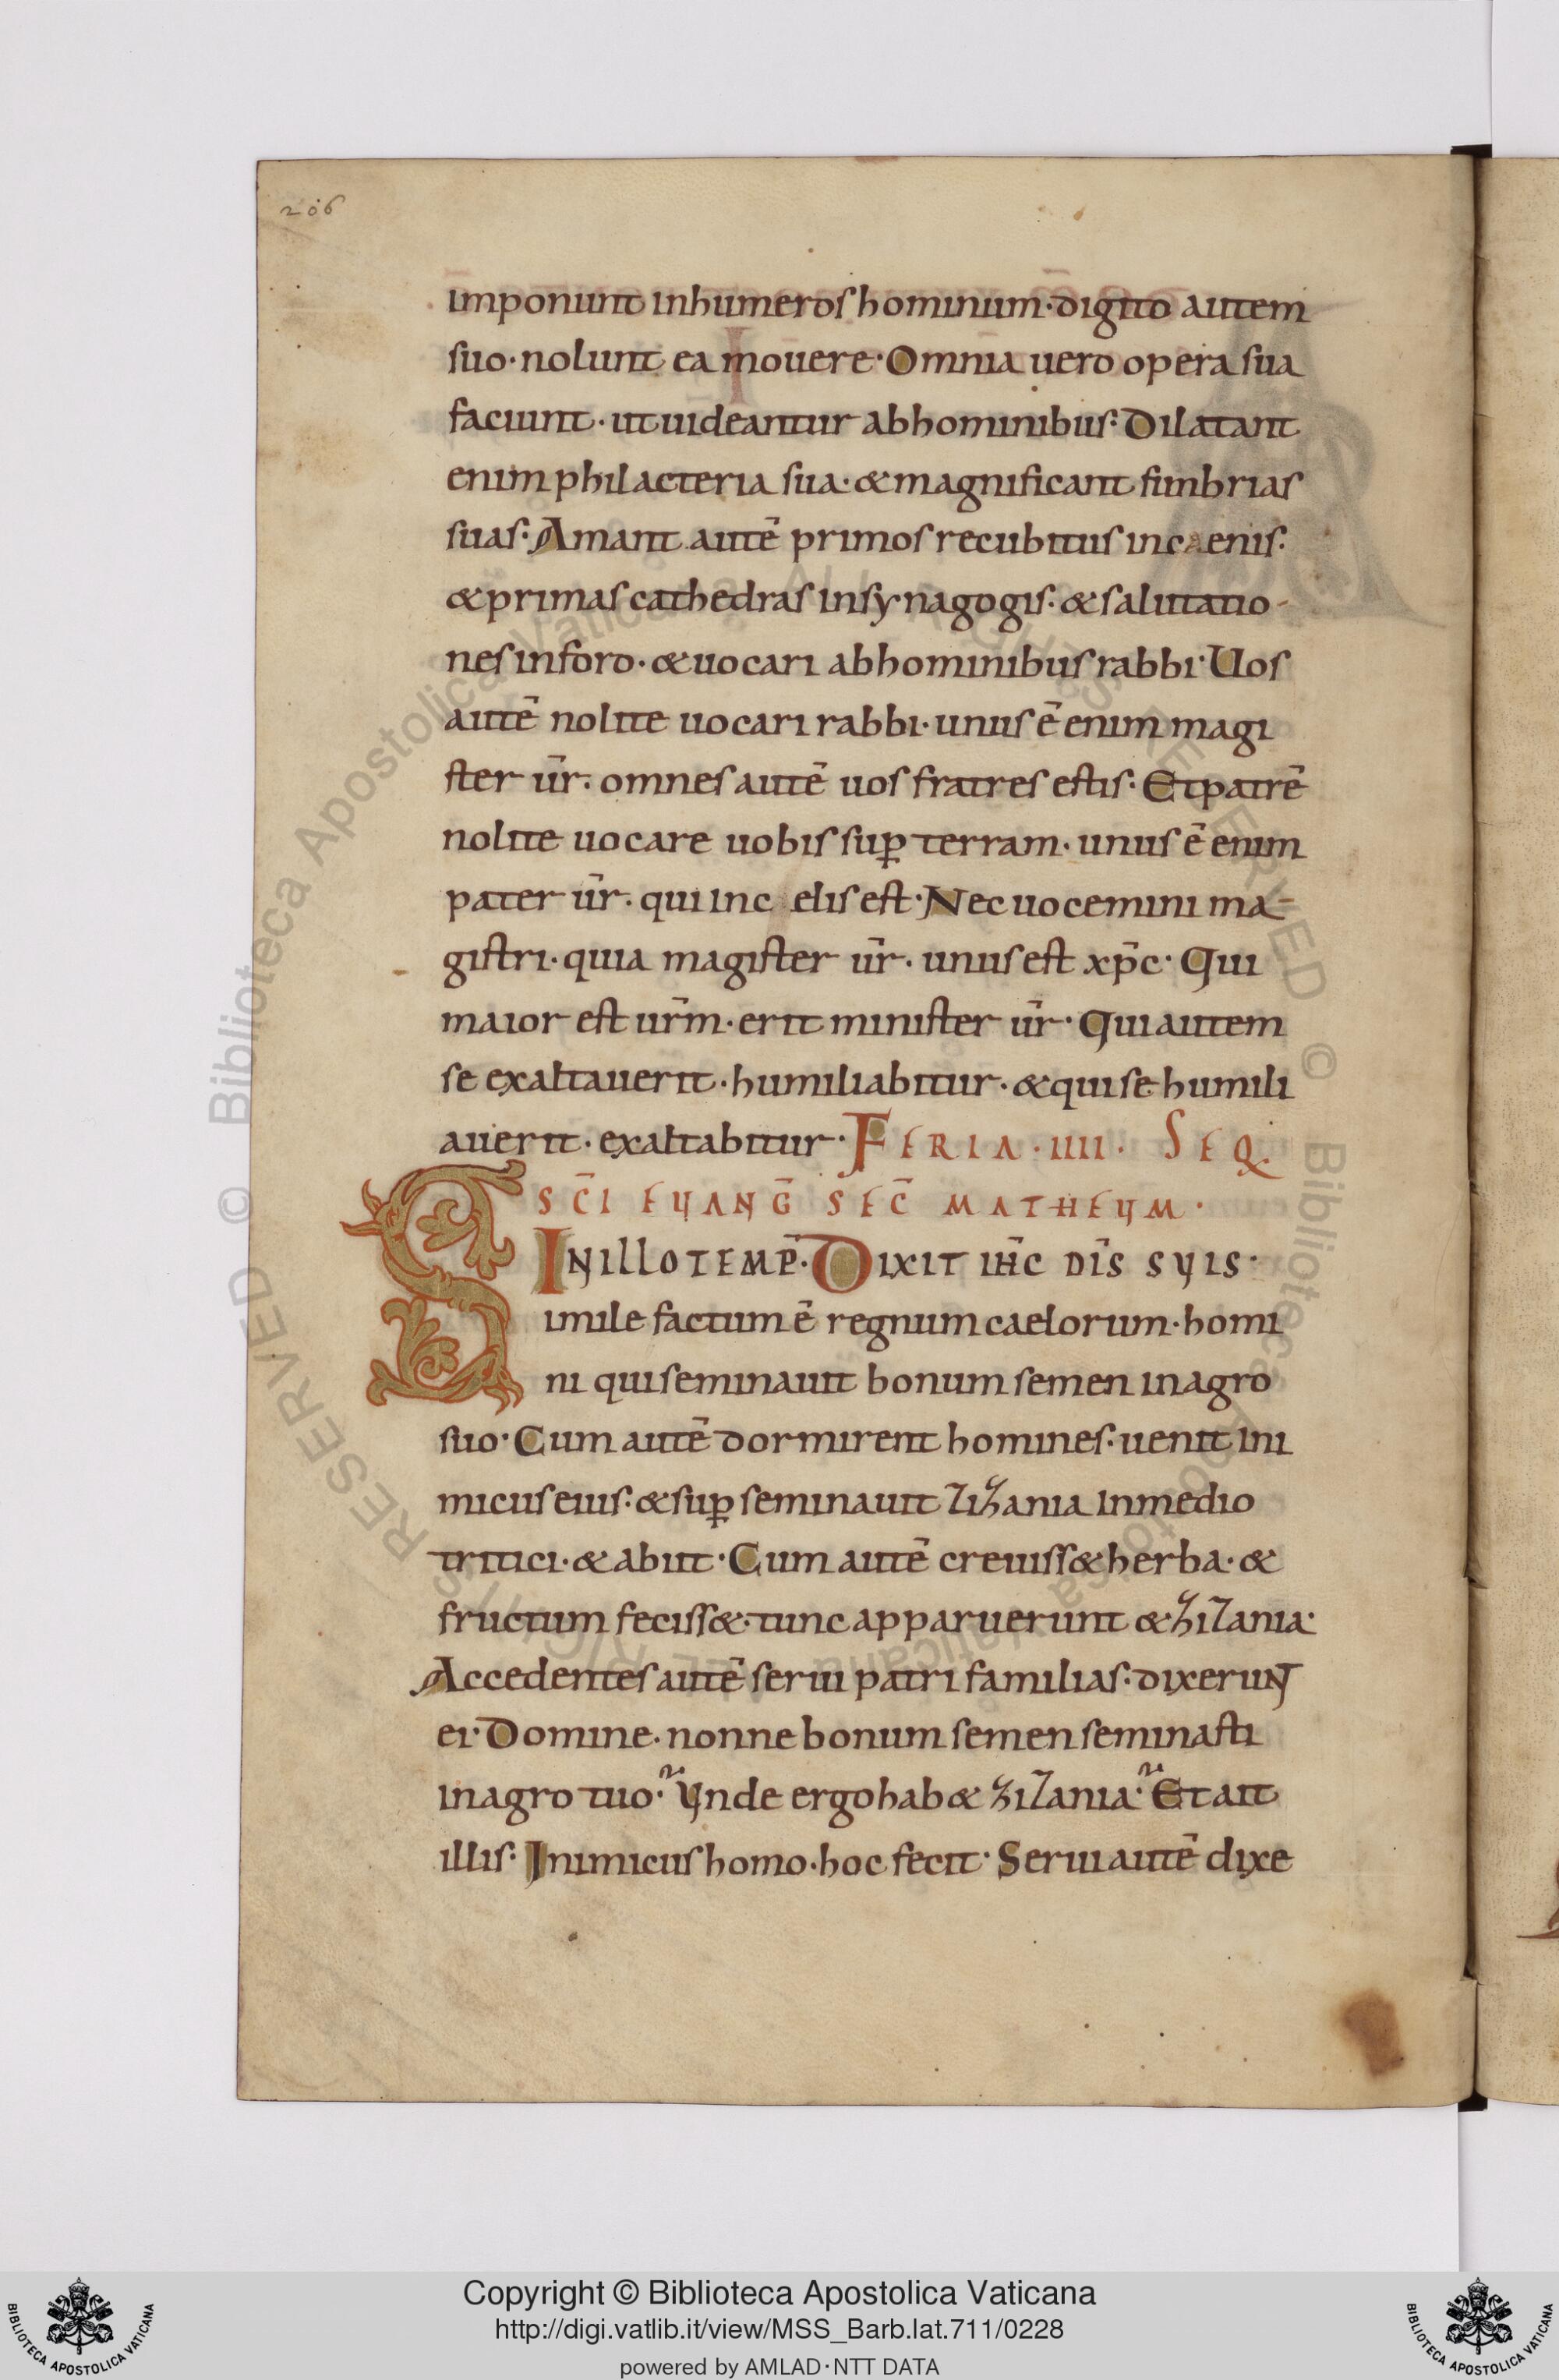 206
imponunt inhumeros hominum· digito autem
suo· nolunt ea mouere· Omnia uero opera sua
faciunt· ut uideantur abhominibus· Dilatant
enim philacteria sua· & magnificant fimbrias
suas· Amant autē primos recubitus incaenis·
& primas cathedras insynagogis· & salutatio-
nes inforo· & uocari abhominibus rabbi· Uos
autē nolite uocari rabbi· unus ē enim magi
ster ur̄· omnes autē uos fratres estis· Et patrē
nolite uocare uobis suꝑ terram· unus ē enim
pater ur̄· qui inc elis est· Nec uocemini ma-
gistri· quia magister ur̄· unus est xp̄c· Qui
maior est urm̄· erit minister ur̄· Qui autem
se exaltauerit· humiliabitur· & qui se humili
auerit· exaltabitur· FERIA· IIII· SEQ·
SC̄I EUANḠ SEC̄ MATHEUM·
IN ILLO TEMP̄· DIXIT IH̄C DIS̄ SUIS·
Simile factum ē regnum caelorum· homi
ni qui seminauit bonum semen inagro
suo· Cum autē dormirent homines· uenit ini
micus eius· & suꝑ seminauit zizania inmedio
tritici· & abiit· Cum autē creuiss& herba· &
fructum feciss&· tunc apparuerunt & zizania·
Accedentes autē serui patri familias· dixerunt
ei· Domine· nonne bonum semen seminasti
inagro tuo· Unde ergo hab& zizania· Et ait
illis· Inimicus homo· hoc fecit· Serui autē dixe
© Biblioteca Apostolica Vaticana ALL RIGHTS RESERVED © Biblioteca Apostolica Vaticana ALL RIGHTS RESERVED
Copyright © Biblioteca Apostolica Vaticana
http://digi.vatlib.it/view/MSS_Barb.lat.711/0228
powered by AMLAD·NTT DATA
BIBLIOTECA APOSTOLICA VATICANA
BIBLIOTECA APOSTOLICA VATICANA